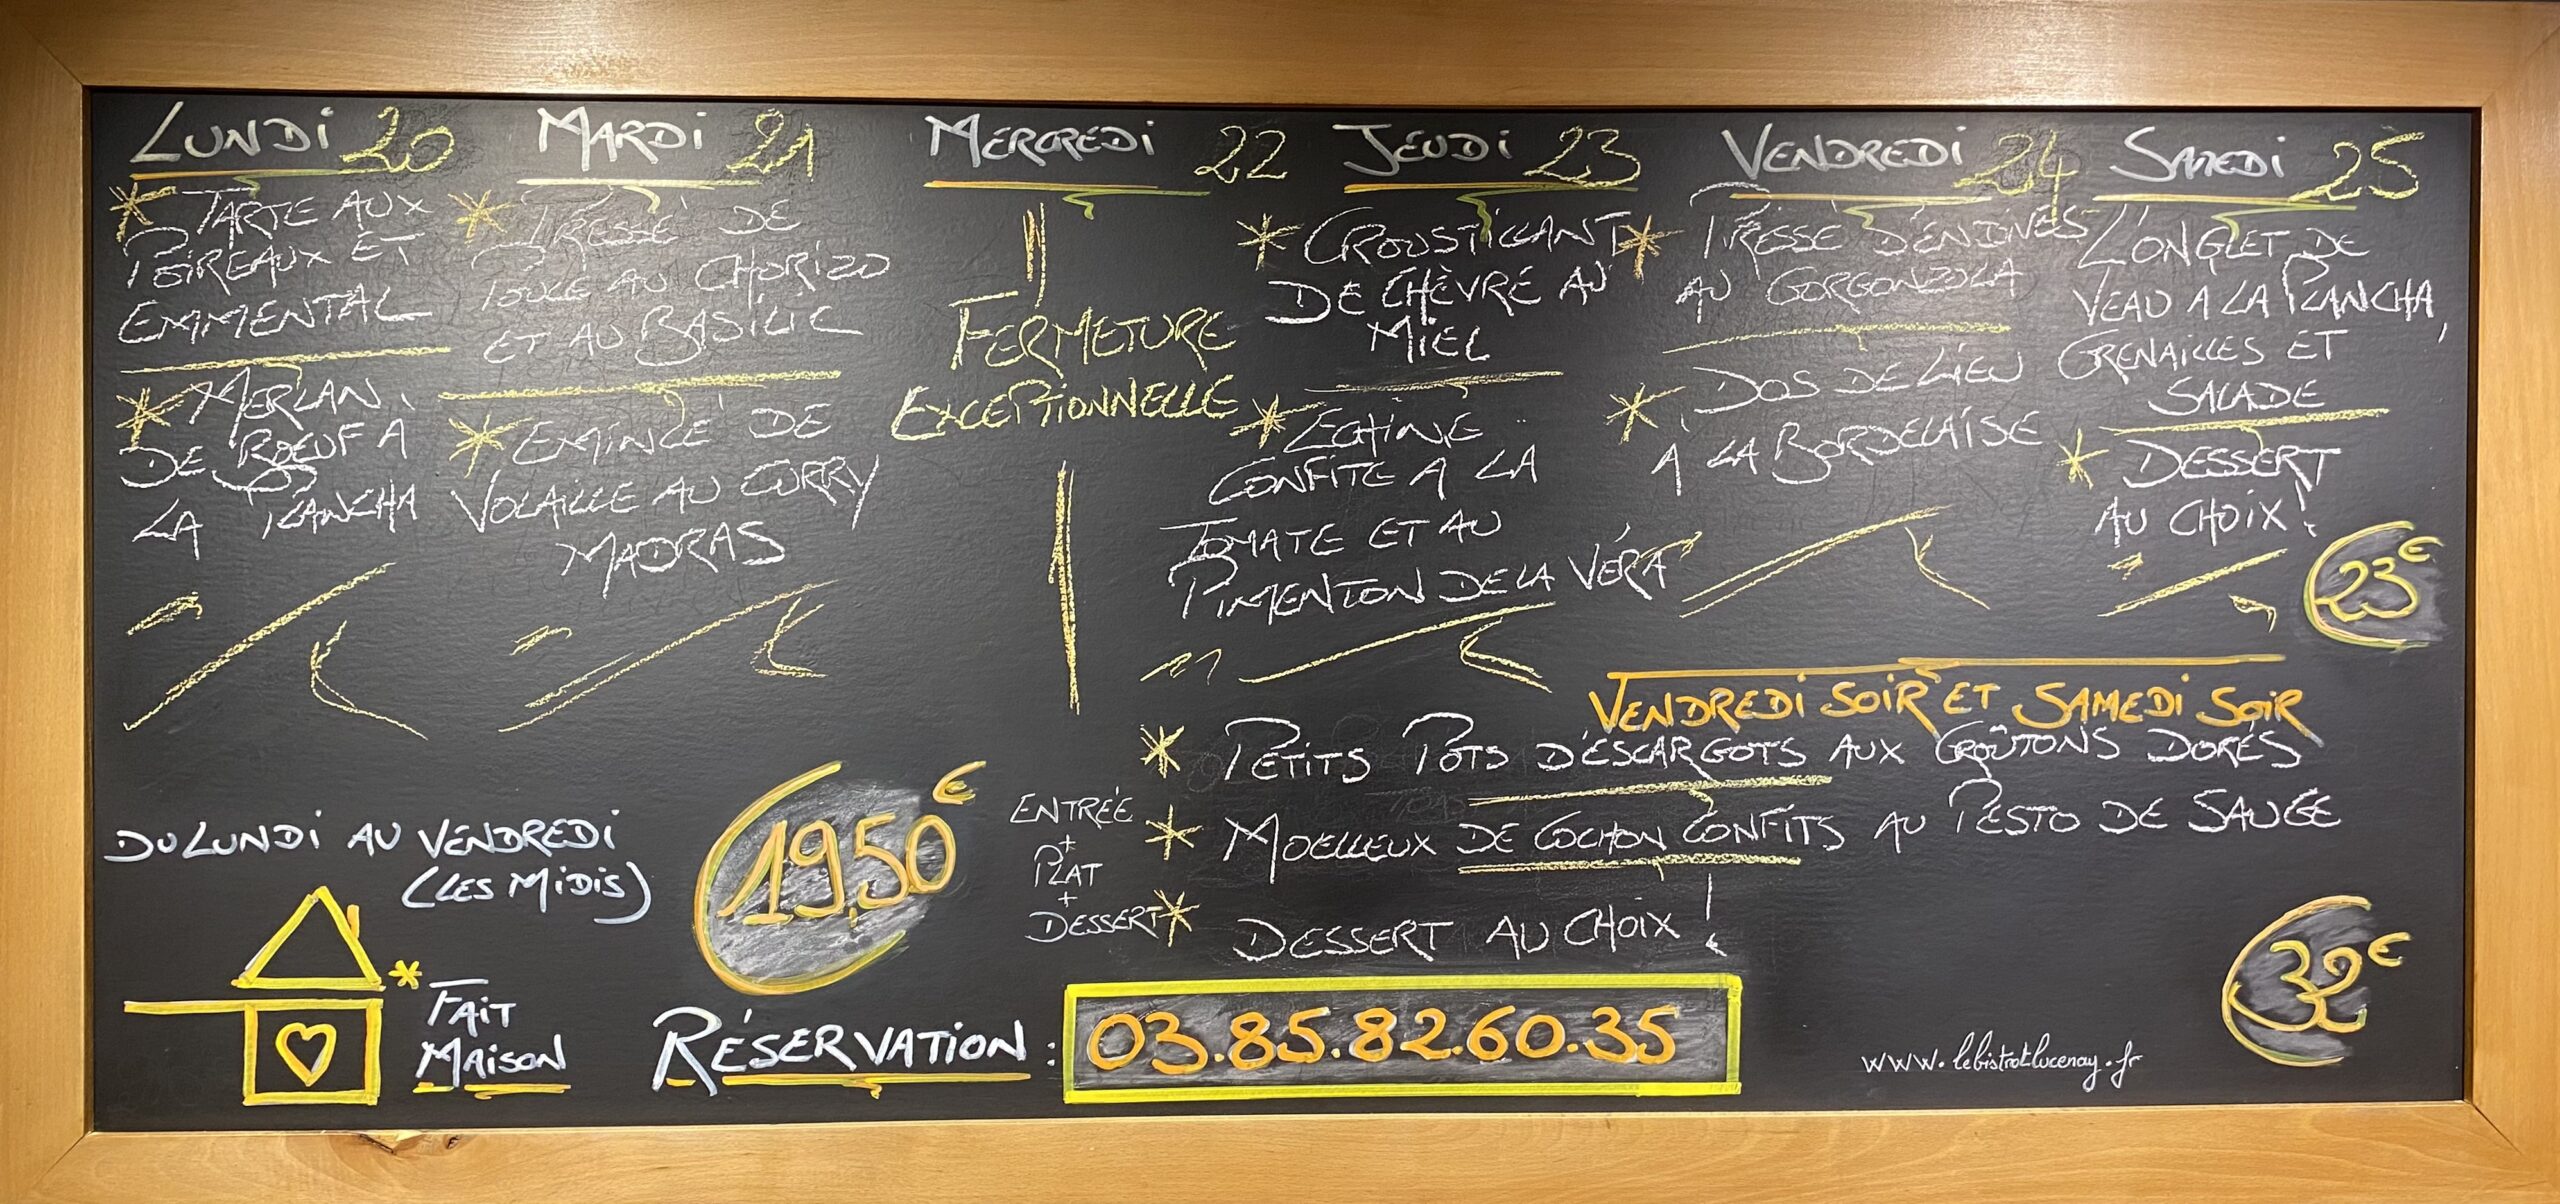 LUNDI 20
* TARTE AUX
POIREAUX ET
EMMENTAL
* MERLAN
DE BŒUF A
LA PLANCHA
MARDI 21
* PRESSÉ DE
POULE AU CHORIZO
ET AU BASILIC
* EMINCÉ DE
VOLAILLE AU CURRY
MADRAS
MERCREDI 22
FERMETURE
EXCEPTIONNELLE
JEUDI 23
* CROUSTILLANT
DE CHÈVRE AU
MIEL
* ECHINE
CONFITE A LA
TOMATE ET AU
PIMENTON DE LA VÉRA
VENDREDI 24
* PRESSÉ D'ENDIVES
AU GORGONZOLA
* DOS DE LIEU
A LA BORDELAISE
SAMEDI 25
L'ONGLET DE
VEAU A LA PLANCHA,
GRENAILLES ET
SALADE
* DESSERT
AU CHOIX !
23€
VENDREDI SOIR ET SAMEDI SOIR
* PETITS POTS D'ESCARGOTS AUX CROÛTONS DORÉS
* MOELLEUX DE COCHON CONFITS AU PESTO DE SAUGE
* DESSERT AU CHOIX !
32€
DU LUNDI AU VENDREDI
(LES MIDIS)
19,50€
ENTRÉE
+
PLAT
+
DESSERT
* FAIT
MAISON
RÉSERVATION : 03.85.82.60.35
www.lebistrotlucenay.fr